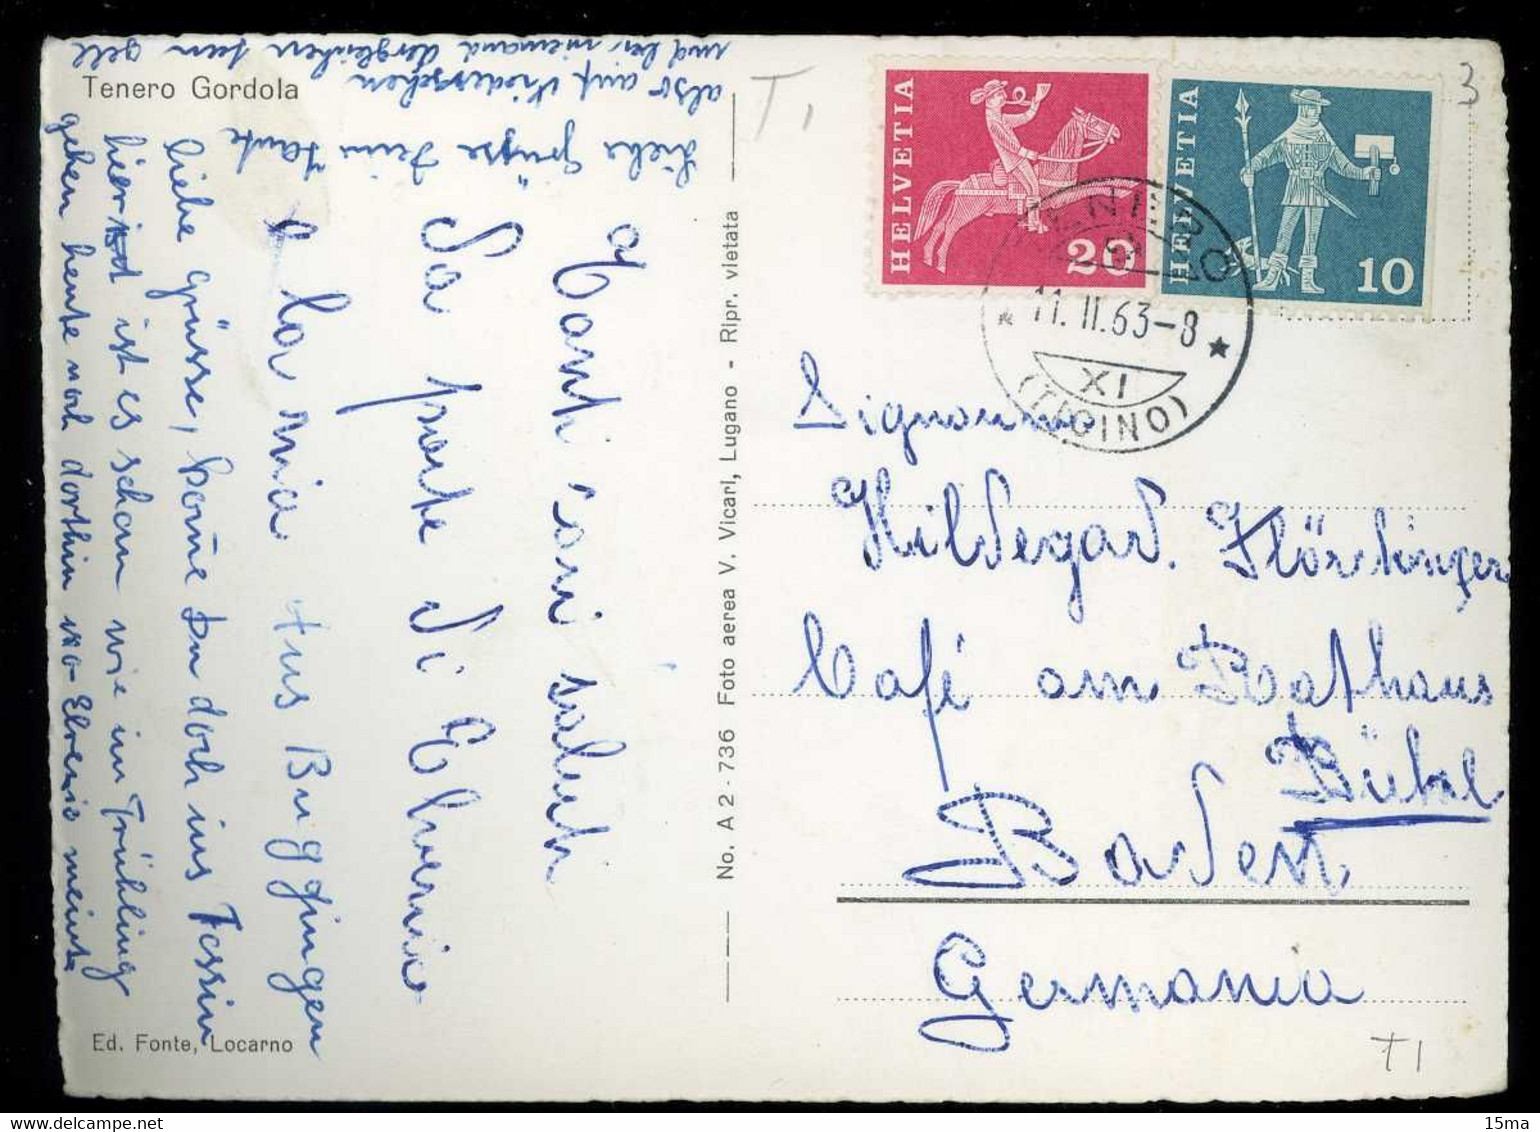 Tenero Gordola
Tanti cari saluti
Da parte di Elvenio
e la mia aus Buggingen
liebe grüsse, kome Du doch ins Tessin
hier ist es schon wie im Frühling
gehen heute noch dorthin wo Elvenio meint
also auf Wiedersehen
liebe Grüsse Dein Tante
Ed. Fonte, Locarno
No. A 2 - 736 Foto aerea V. Vicari, Lugano - Ripr. vietata
T 1
3
HELVETIA
20
HELVETIA
10
TENERO
11. II. 63-8
XI
(TICINO)
Signorina
Hildegard.
Café am Rathaus
Bühl
Baden
Germania
T1
15ma